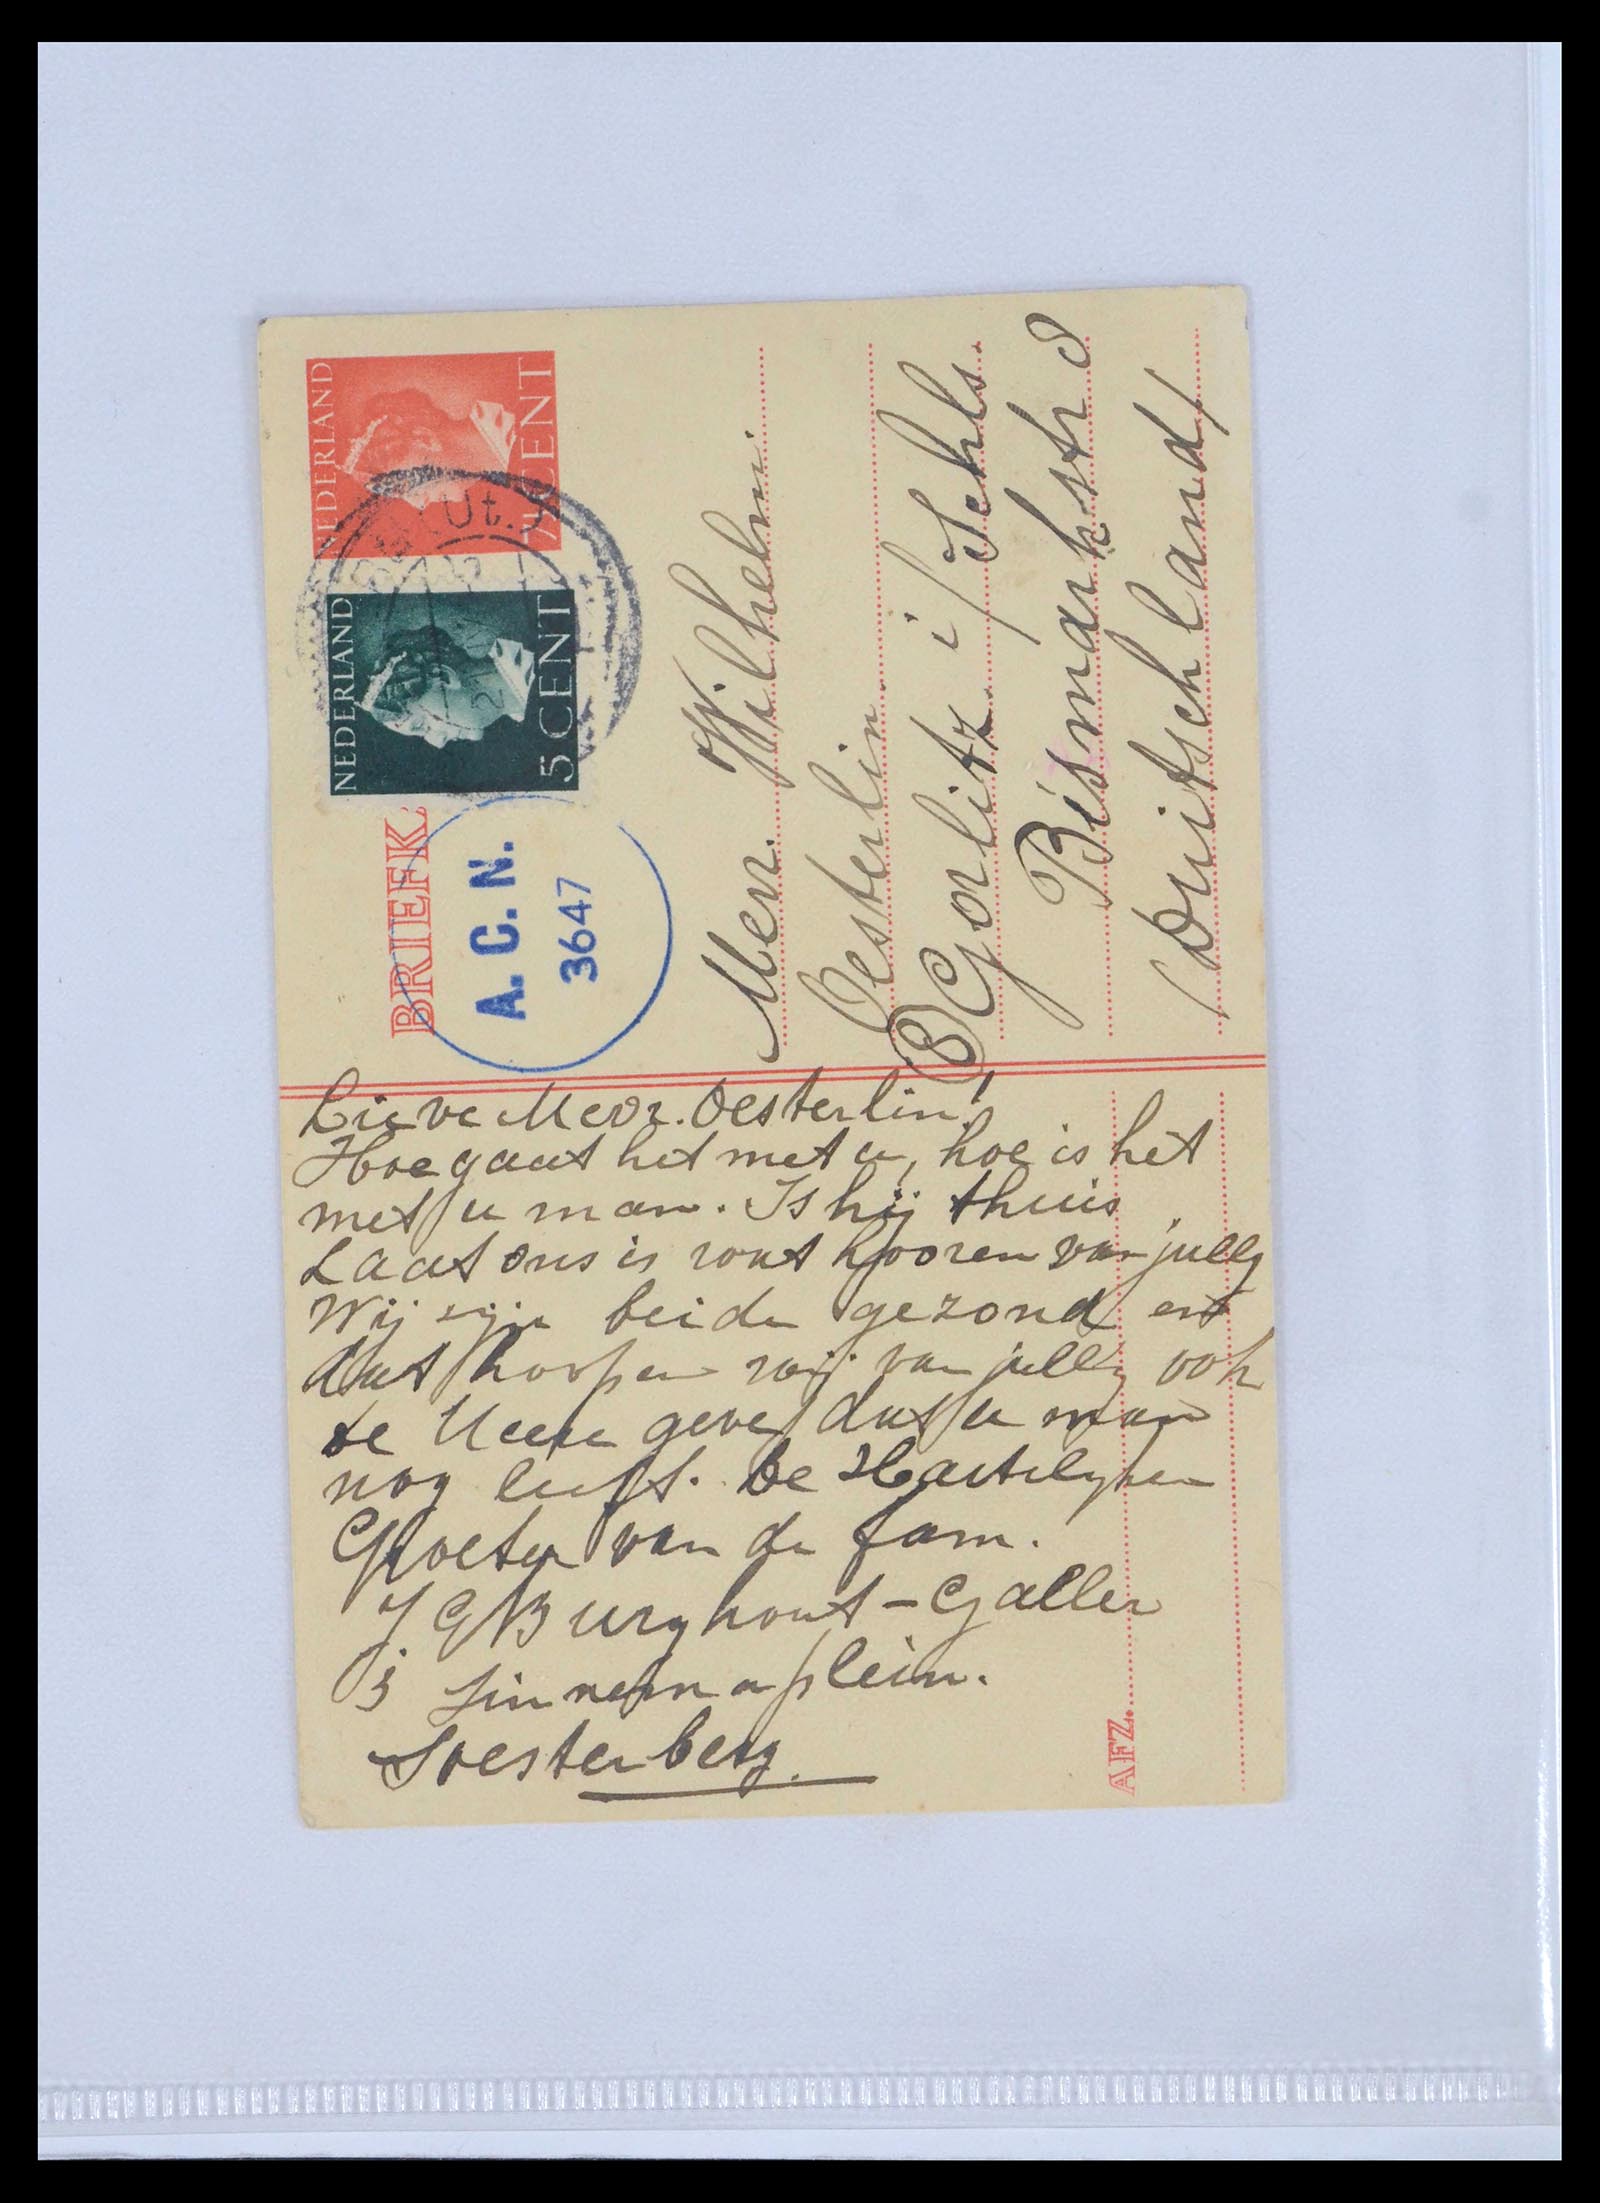 NEDERLAND
7½ CENT
NEDERLAND
5 CENT
Ut.
BRIEFK
A. C. N.
3647
Mevr. Wilhelm.
Oesterlin.
8 Gorlitz. i/Schls.
Bismarkstr 8
(Duitschland)
Lieve Mevr. Oesterlin!
Hoe gaat het met u, hoe is het
met u man. Is hij thuis
Laat ons is wat hooren van jully
Wij zijn beide gezond en
dat hoopen wij van jully ook
de Heere geve dat u man
nog leeft. De Hartelyken
Groeten van de fam.
J G Burghout - Galler
3 plein.
Soesterberg.
AFZ.